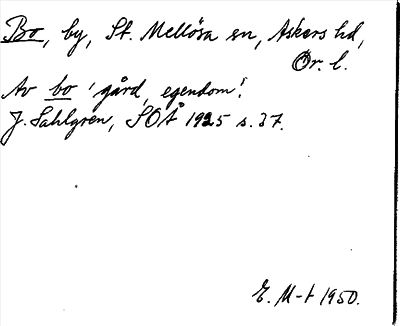 Bo, by, St. Mellösa sn, Askers hd,
Ör. l.
Av bo 'gård, egendom'.
J. Sahlgren, SOÅ 1925 s. 37.
E. M-t 1950.